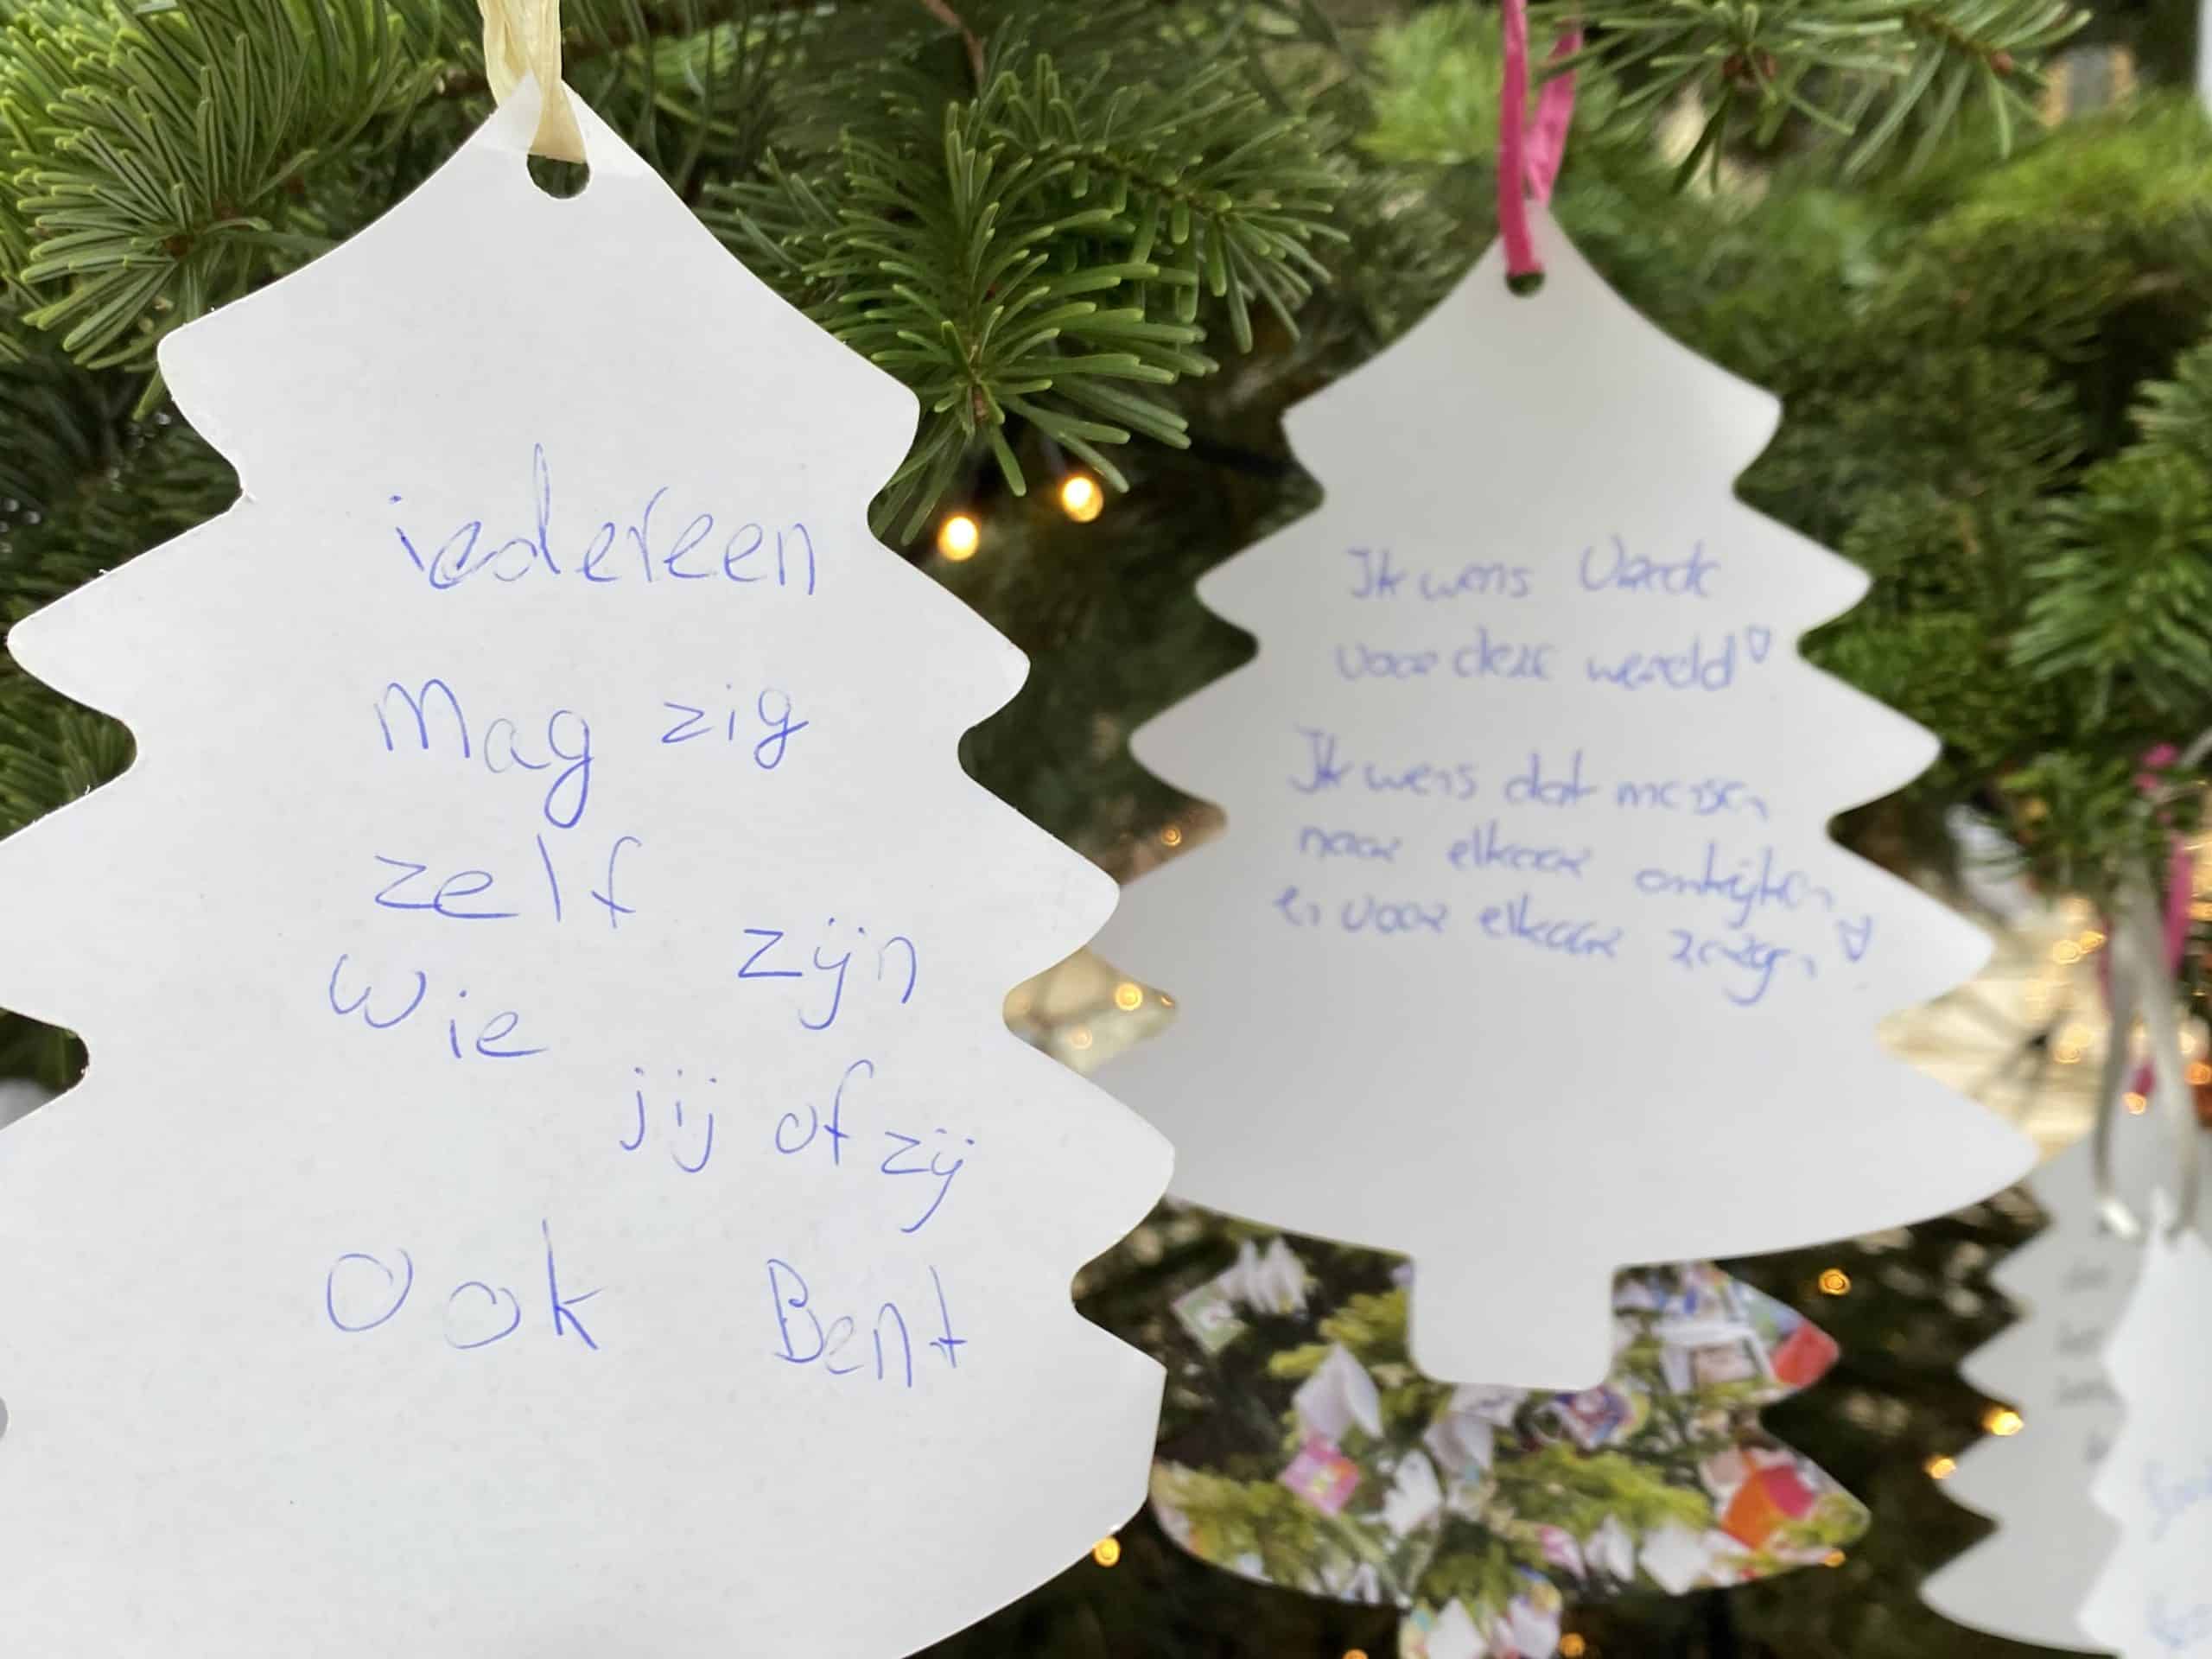 iedereen
mag zig
zelf zijn
wie
jij of zij
ook Bent
Ik wens Vrede
voor deze wereld ♡
Ik wens dat mensen
naar elkaar omkijken
en voor elkaar zorgen ♡